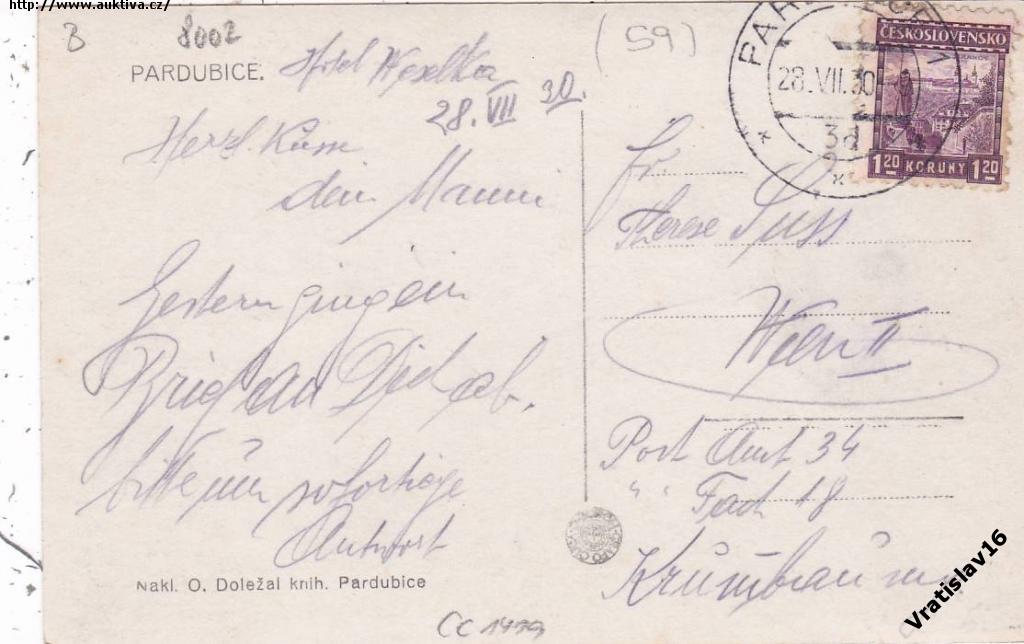 http://www.auktiva.cz/
B 8002
(59)
PARDUBICE.
Hotel Veselka
28. VII 30.
dein Manni
Gestern ging ein
Brief an Dich ab.
bitte um sofortige
Antwort
Nakl. O. Doležal knih. Pardubice
CC 1999
28.VII.30
3d
ČESKOSLOVENSKO
1.20 KORUNY 1.20
Fr.
Therese Suss
Wien II
Post Amt 34
" Fach 18
Vratislav16